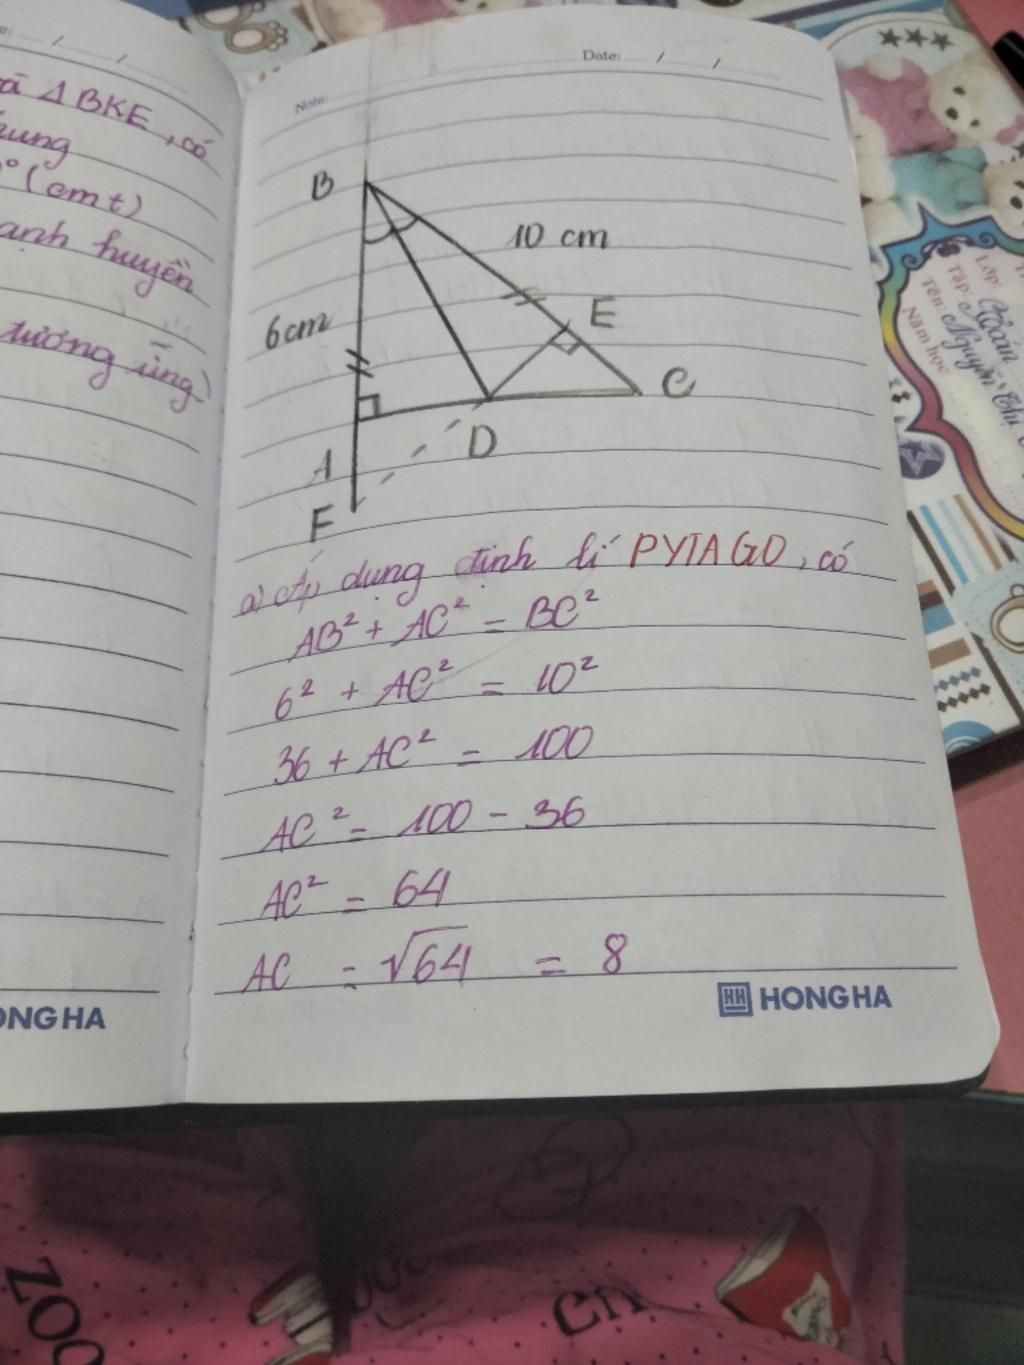 và Δ BKE, có
chung
(cmt)
huyền
tương ứng)
ONG HA
Date: / /
Note:
B
10 cm
6cm
E
C
D
A
F
a) Áp dụng định lí PYTAGO, có
AB² + AC² = BC²
6² + AC² = 10²
36 + AC² = 100
AC² = 100 - 36
AC² = 64
AC = √64 = 8
HH HONG HA
Lớp:
Tập: Toán
Tên: Nguyễn Thị
Năm học
ZOO